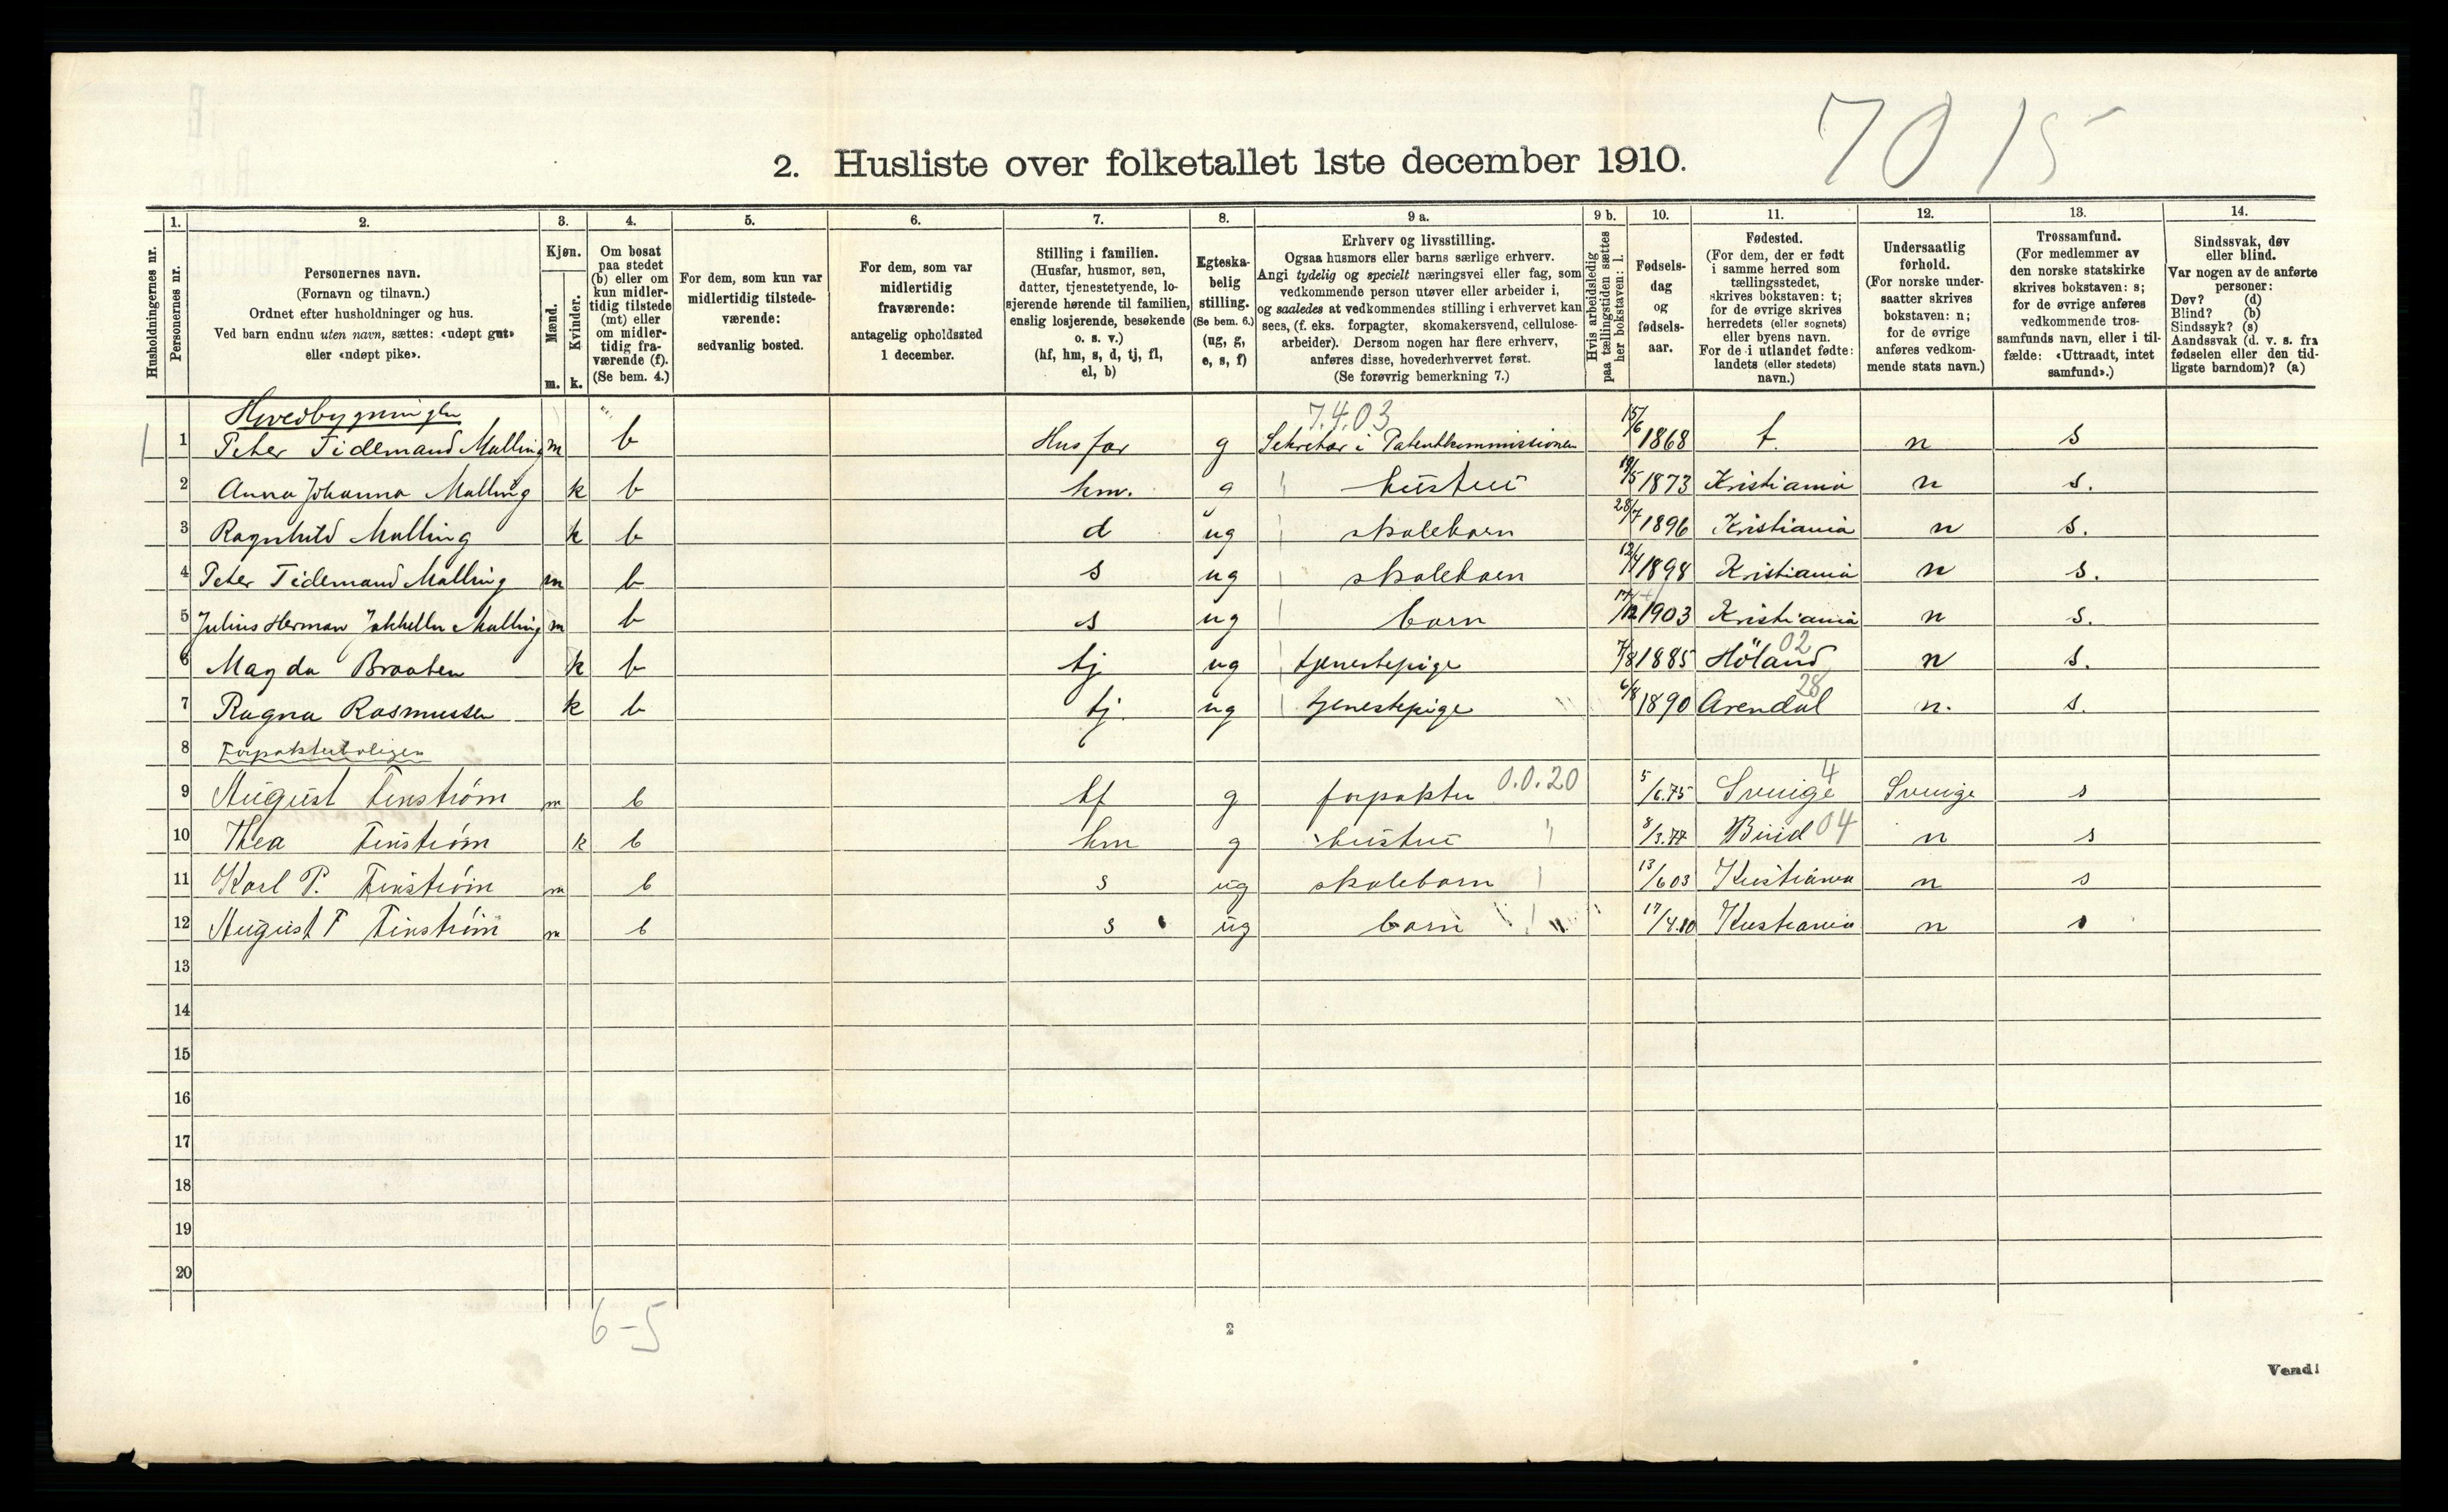 70 15
2. Husliste over folketallet 1ste december 1910.
Husholdningernes nr.
1. Personernes nr.
2. Personernes navn.
(Fornavn og tilnavn.)
Ordnet efter husholdninger og hus.
Ved barn endnu uten navn, sættes: «udøpt gut»
eller «udøpt pike».
3. Kjøn.
Mænd. m.
Kvinder. k.
4. Om bosat
paa stedet
(b) eller om
kun midler-
tidig tilstede
(mt) eller
om midler-
tidig fra-
værende (f).
(Se bem. 4.)
5. For dem, som kun var
midlertidig tilstede-
værende:
sedvanlig bosted.
6. For dem, som var
midlertidig
fraværende:
antagelig opholdssted
1 december.
7. Stilling i familien.
(Husfar, husmor, søn,
datter, tjenestetyende, lo-
sjerende hørende til familien,
enslig losjerende, besøkende
o. s. v.)
(hf, hm, s, d, tj, fl,
el, b)
8. Egteska-
belig
stilling.
(Se bem. 6.)
(ug, g,
e, s, f)
9 a. Erhverv og livsstilling.
Ogsaa husmors eller barns særlige erhverv.
Angi tydelig og specielt næringsvei eller fag, som
vedkommende person utøver eller arbeider i,
og saaledes at vedkommendes stilling i erhvervet kan
sees, (f. eks. forpagter, skomakersvend, cellulose-
arbeider). Dersom nogen har flere erhverv,
anføres disse, hovederhvervet først.
(Se forøvrig bemerkning 7.)
9 b. Hvis arbeidsledig
paa tællingstiden sættes
her bokstaven: l.
10. Fødsels-
dag
og
fødsels-
aar.
11. Fødested.
(For dem, der er født
i samme herred som
tællingsstedet,
skrives bokstaven: t;
for de øvrige skrives
herredets (eller sognets)
eller byens navn.
For de i utlandet fødte:
landets (eller stedets)
navn.)
12. Undersaatlig
forhold.
(For norske under-
saatter skrives
bokstaven: n;
for de øvrige
anføres vedkom-
mende stats navn.)
13. Trossamfund.
(For medlemmer av
den norske statskirke
skrives bokstaven: s;
for de øvrige anføres
vedkommende tros-
samfunds navn, eller i til-
fælde: «Uttraadt, intet
samfund».)
14. Sindssvak, døv
eller blind.
Var nogen av de anførte
personer:
Døv? (d)
Blind? (b)
Sindssyk? (s)
Aandssvak (d. v. s. fra
fødselen eller den tid-
ligste barndom)? (a)
Hovedbygningen 7.4.03
1 1 Peter Tidemand Malling m b Husfar g Sekretær i Patentkommissionen 15/6 1868 t. n s
2 Anna Johanna Malling k b hm. g hustru 19/5 1873 Kristiania n s.
3 Ragnhild Malling k b d ug skolebarn 28/7 1896 Kristiania n s.
4 Peter Tidemand Malling m b s ug skolebarn 12/4 1898 Kristiania n s.
5 Julius Herman Malling m b s ug barn 1903 Kristiania n s.
6 Magda Braaten k b tj ug tjenestepige 7/8 1885 Høland 02 n s.
7 Ragna Rasmussen k b tj. ug tjenestepige 6/8 1890 Arendal 28 n. s.
8 Forpakterboligen
9 August Finstrøm m b hf g forpakter 0.0.20 5/6.75 Sverige 4 Sverige s
10 Thea Finstrøm k b hm g hustru 8/3.77 Biri 04 n s
11 Karl P. Finstrøm m b s ug skolebarn 13/6 03 Kristiania n s
12 August F Finstrøm m b s ug barn 17/4.10 Kristiania n s
13
14
15
16
17
18
19
20
6-5
2
Vend!